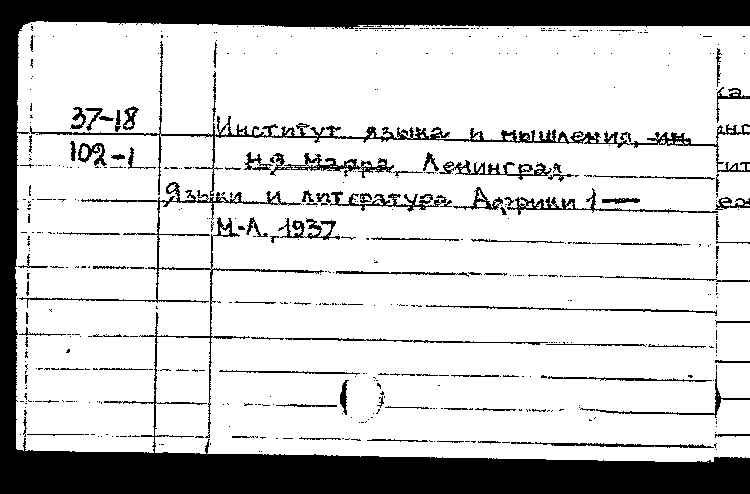 37-18
102-1
Институт языка и мышления, ин.
Н.Я. Марра, Ленинград.
Языки и литература Африки 1—
М.-Л., 1937.